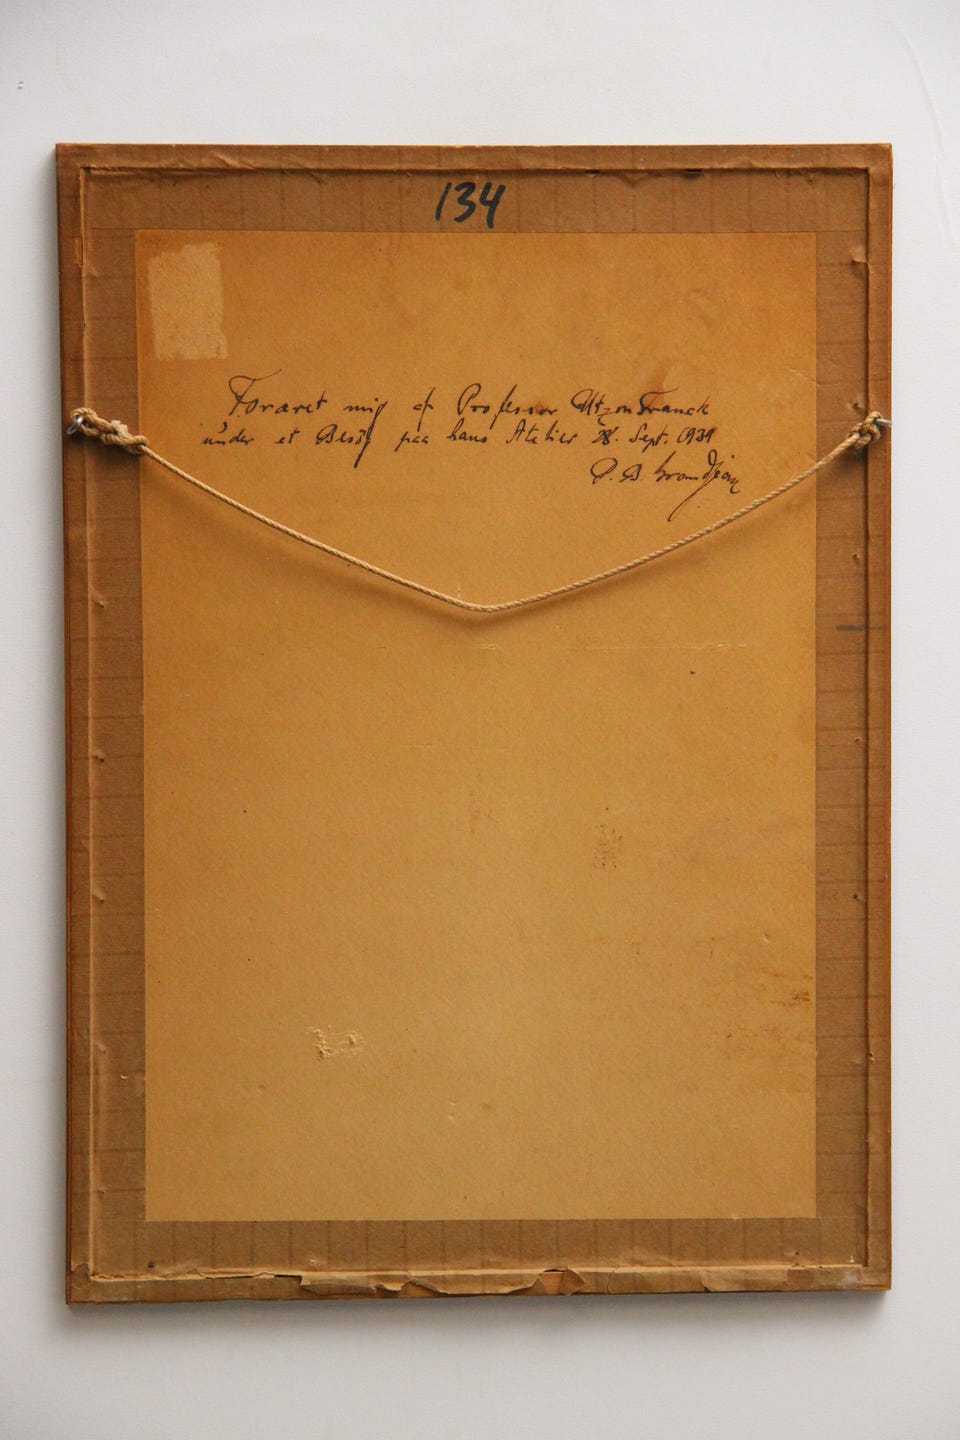 134
Foræret mig af Professor Utzon Franck
under et Besög paa hans Atelier 28. Sept. 1931
P. B. Grandjean